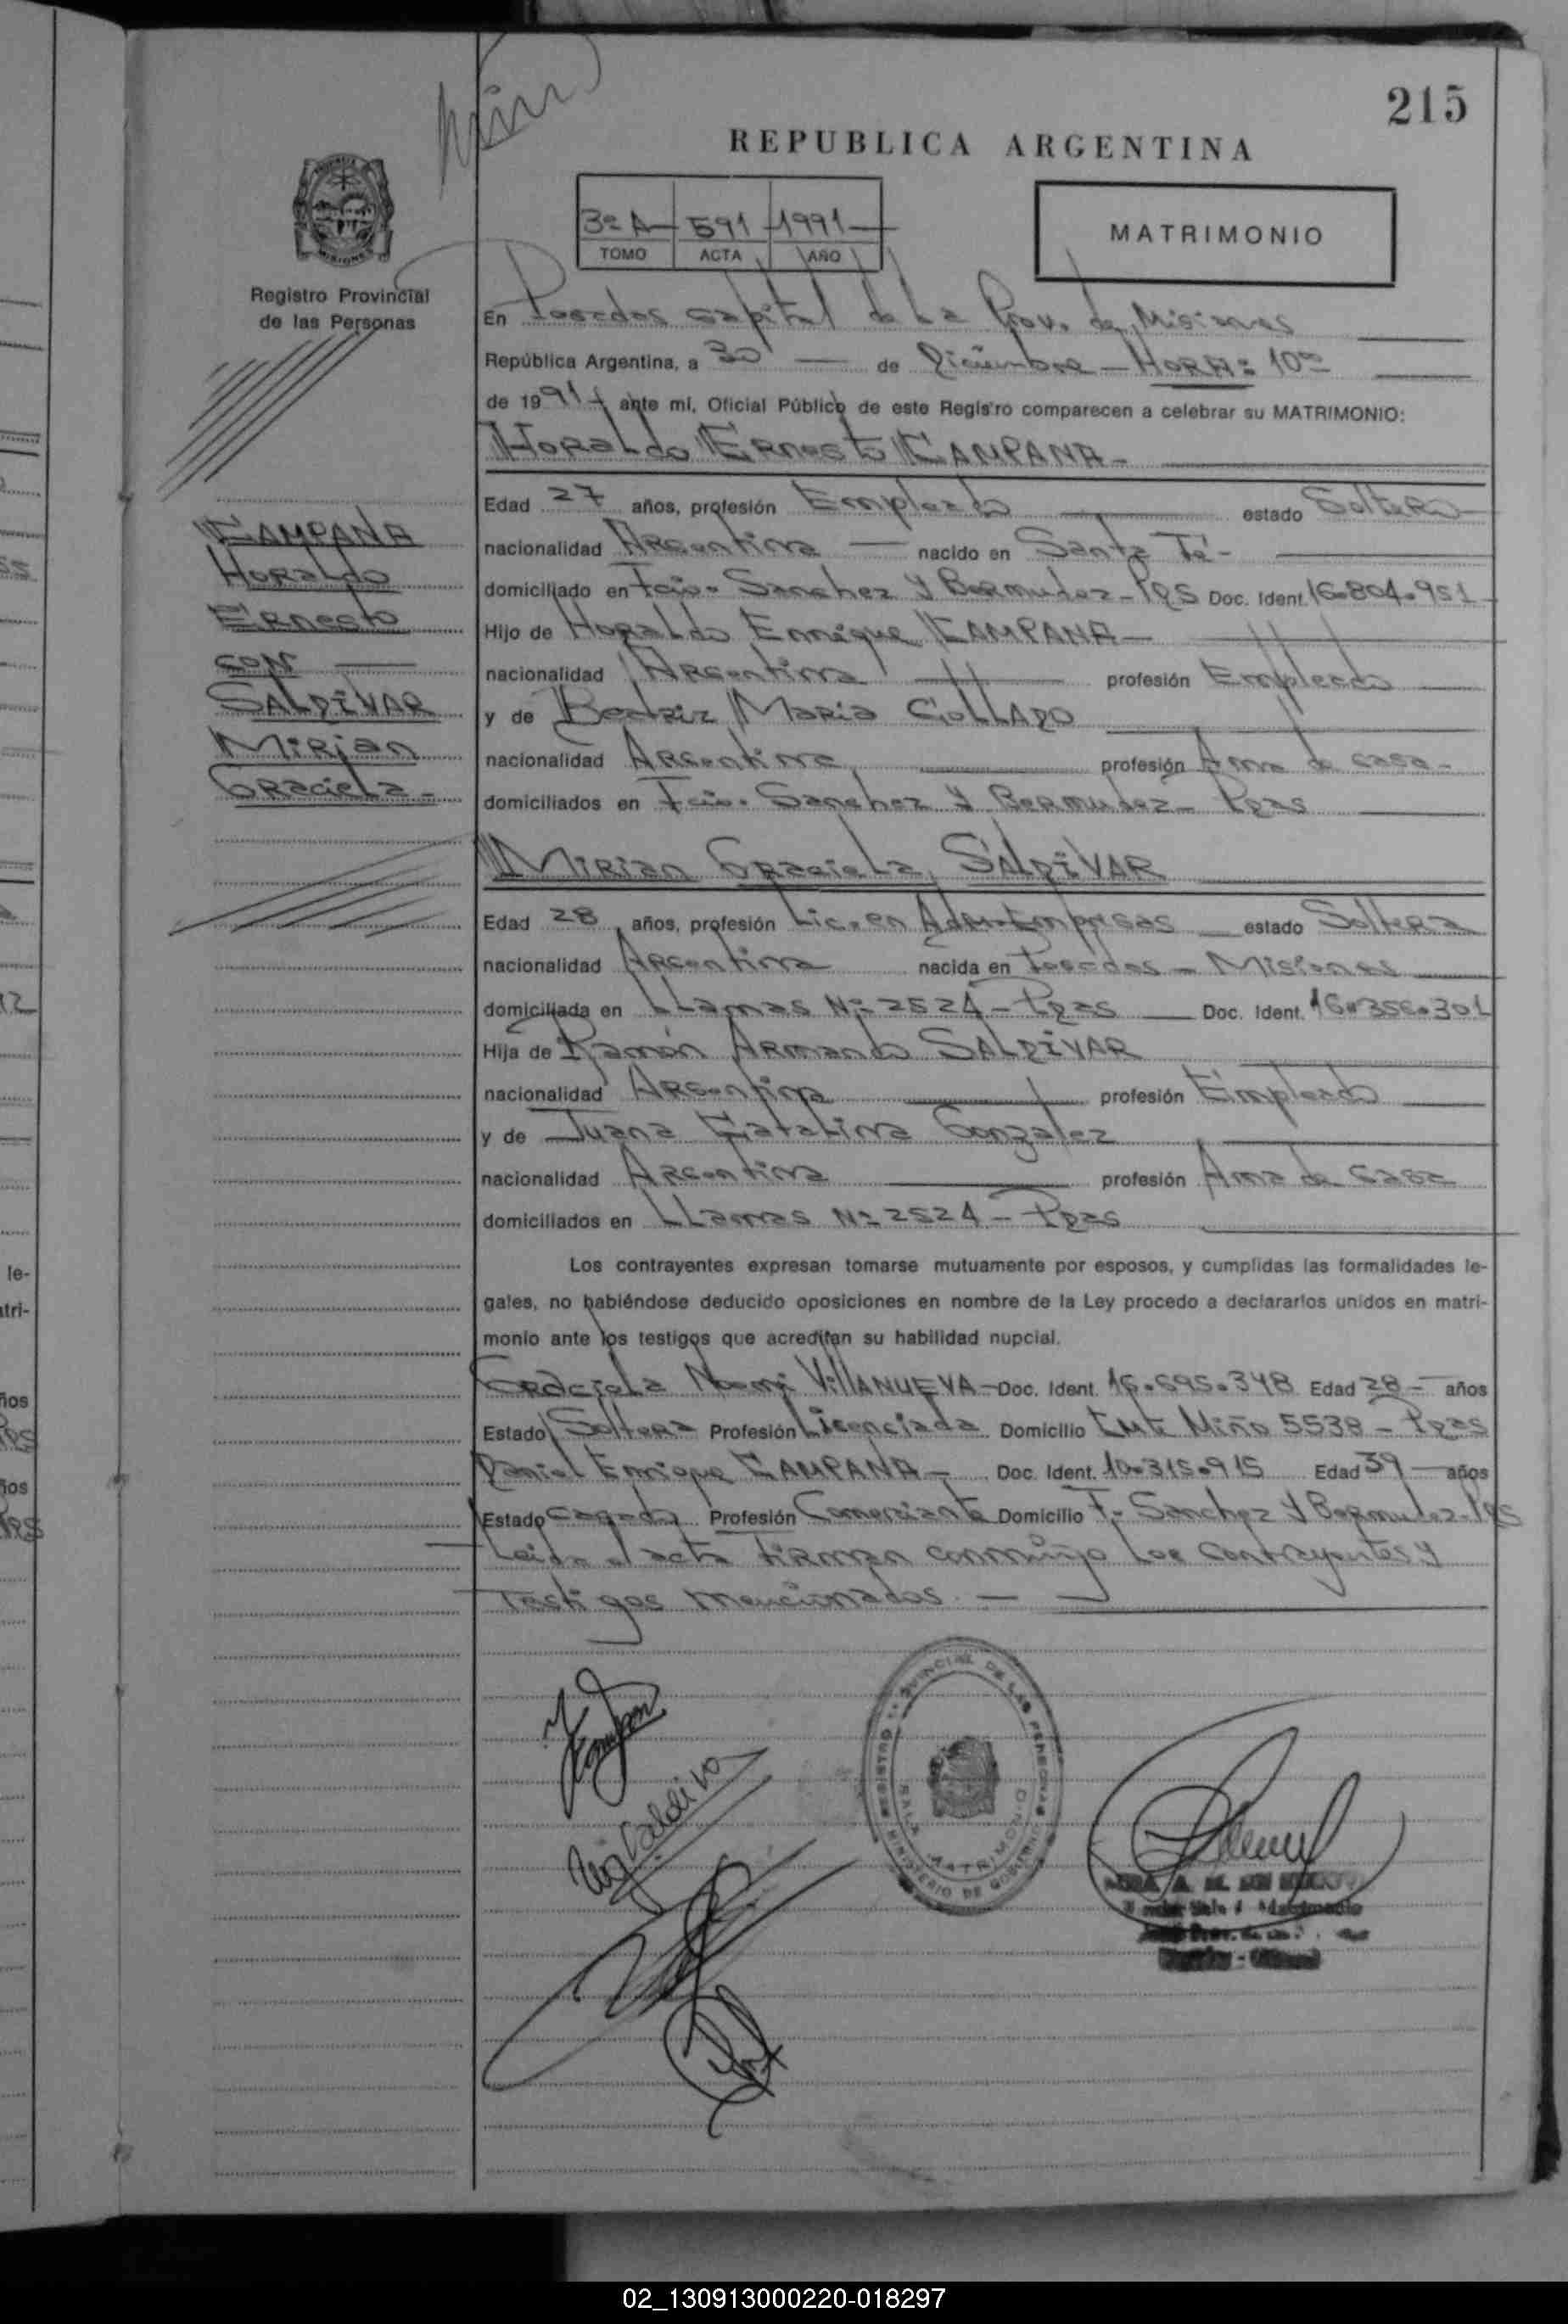 215
REPUBLICA ARGENTINA
3º A 591 1991
TOMO ACTA AÑO
MATRIMONIO
Registro Provincial
de las Personas
CAMPANA
Horaldo
Ernesto
con
SALDIVAR
Mirian
Graciela
En Posadas capital de la Prov. de Misiones
República Argentina, a 30 de Diciembre - HORA: 10
de 1991 ante mí, Oficial Público de este Registro comparecen a celebrar su MATRIMONIO:
Horaldo Ernesto CAMPANA
Edad 27 años, profesión Empleado estado Soltero
nacionalidad Argentina nacido en Santa Fé
domiciliado en Fcio. Sanchez y Bermudez - Pgs Doc. Ident. 16.804.951
Hijo de Horaldo Enrique CAMPANA
nacionalidad Argentina profesión Empleado
y de Beatriz Maria COLLADO
nacionalidad Argentina profesión Ama de casa
domiciliados en Fcio. Sanchez y Bermudez - Pgas
Mirian Graciela SALDIVAR
Edad 28 años, profesión Lic. en Adm. Empresas estado Soltera
nacionalidad Argentina nacida en Posadas - Misiones
domiciliada en Llamas Nº 2524 - Pgas Doc. Ident. 16.356.301
Hija de Ramón Armando SALDIVAR
nacionalidad Argentina profesión Empleado
y de Juana Catalina Gonzalez
nacionalidad Argentina profesión Ama de casa
domiciliados en Llamas Nº 2524 - Pgas
Los contrayentes expresan tomarse mutuamente por esposos, y cumplidas las formalidades le-
gales, no habiéndose deducido oposiciones en nombre de la Ley procedo a declararlos unidos en matri-
monio ante los testigos que acreditan su habilidad nupcial.
Graciela Noemi VillANUEVA - Doc. Ident. 16.695.348 Edad 28 años
Estado Soltera Profesión Licenciada Domicilio Miño 5538 - Pgas
Daniel Enrique CAMPANA - Doc. Ident. 10.315.915 Edad 39 años
Estado casado Profesión Comerciante Domicilio F. Sanchez y Bermudez - Pgs
Leida el acta firman conmigo los contrayentes y
testigos mencionados.
REGISTRO PROVINCIAL DE LAS PERSONAS
SALA MATRIMONIO
MINISTERIO DE GOBIERNO
02_130913000220-018297